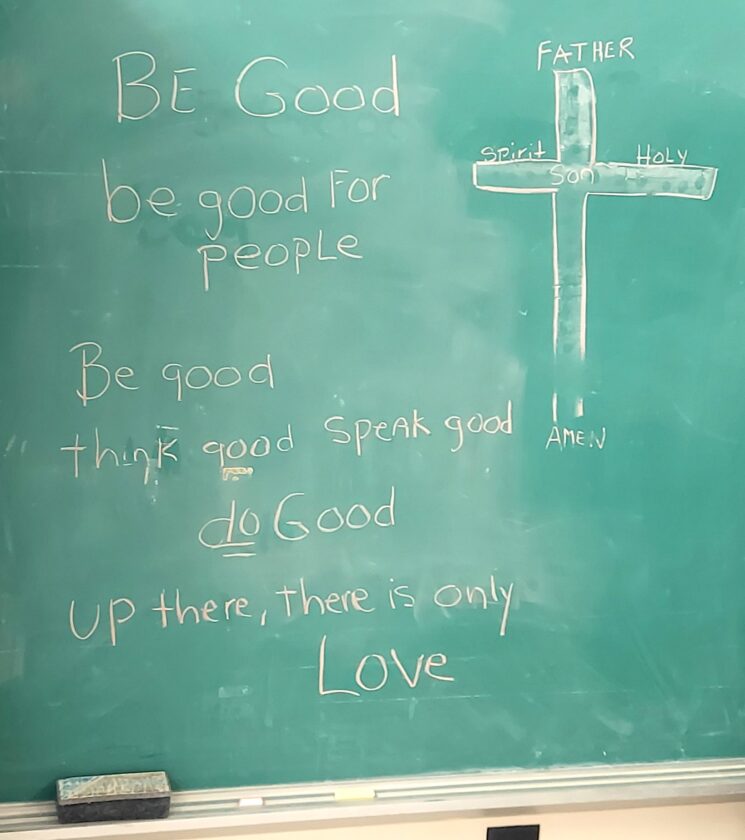 BE Good
be good For
peopLe
Be good
think good speak good
do Good
UP there, there is only
Love
FATHER
Spirit HOLY
Son
AMEN